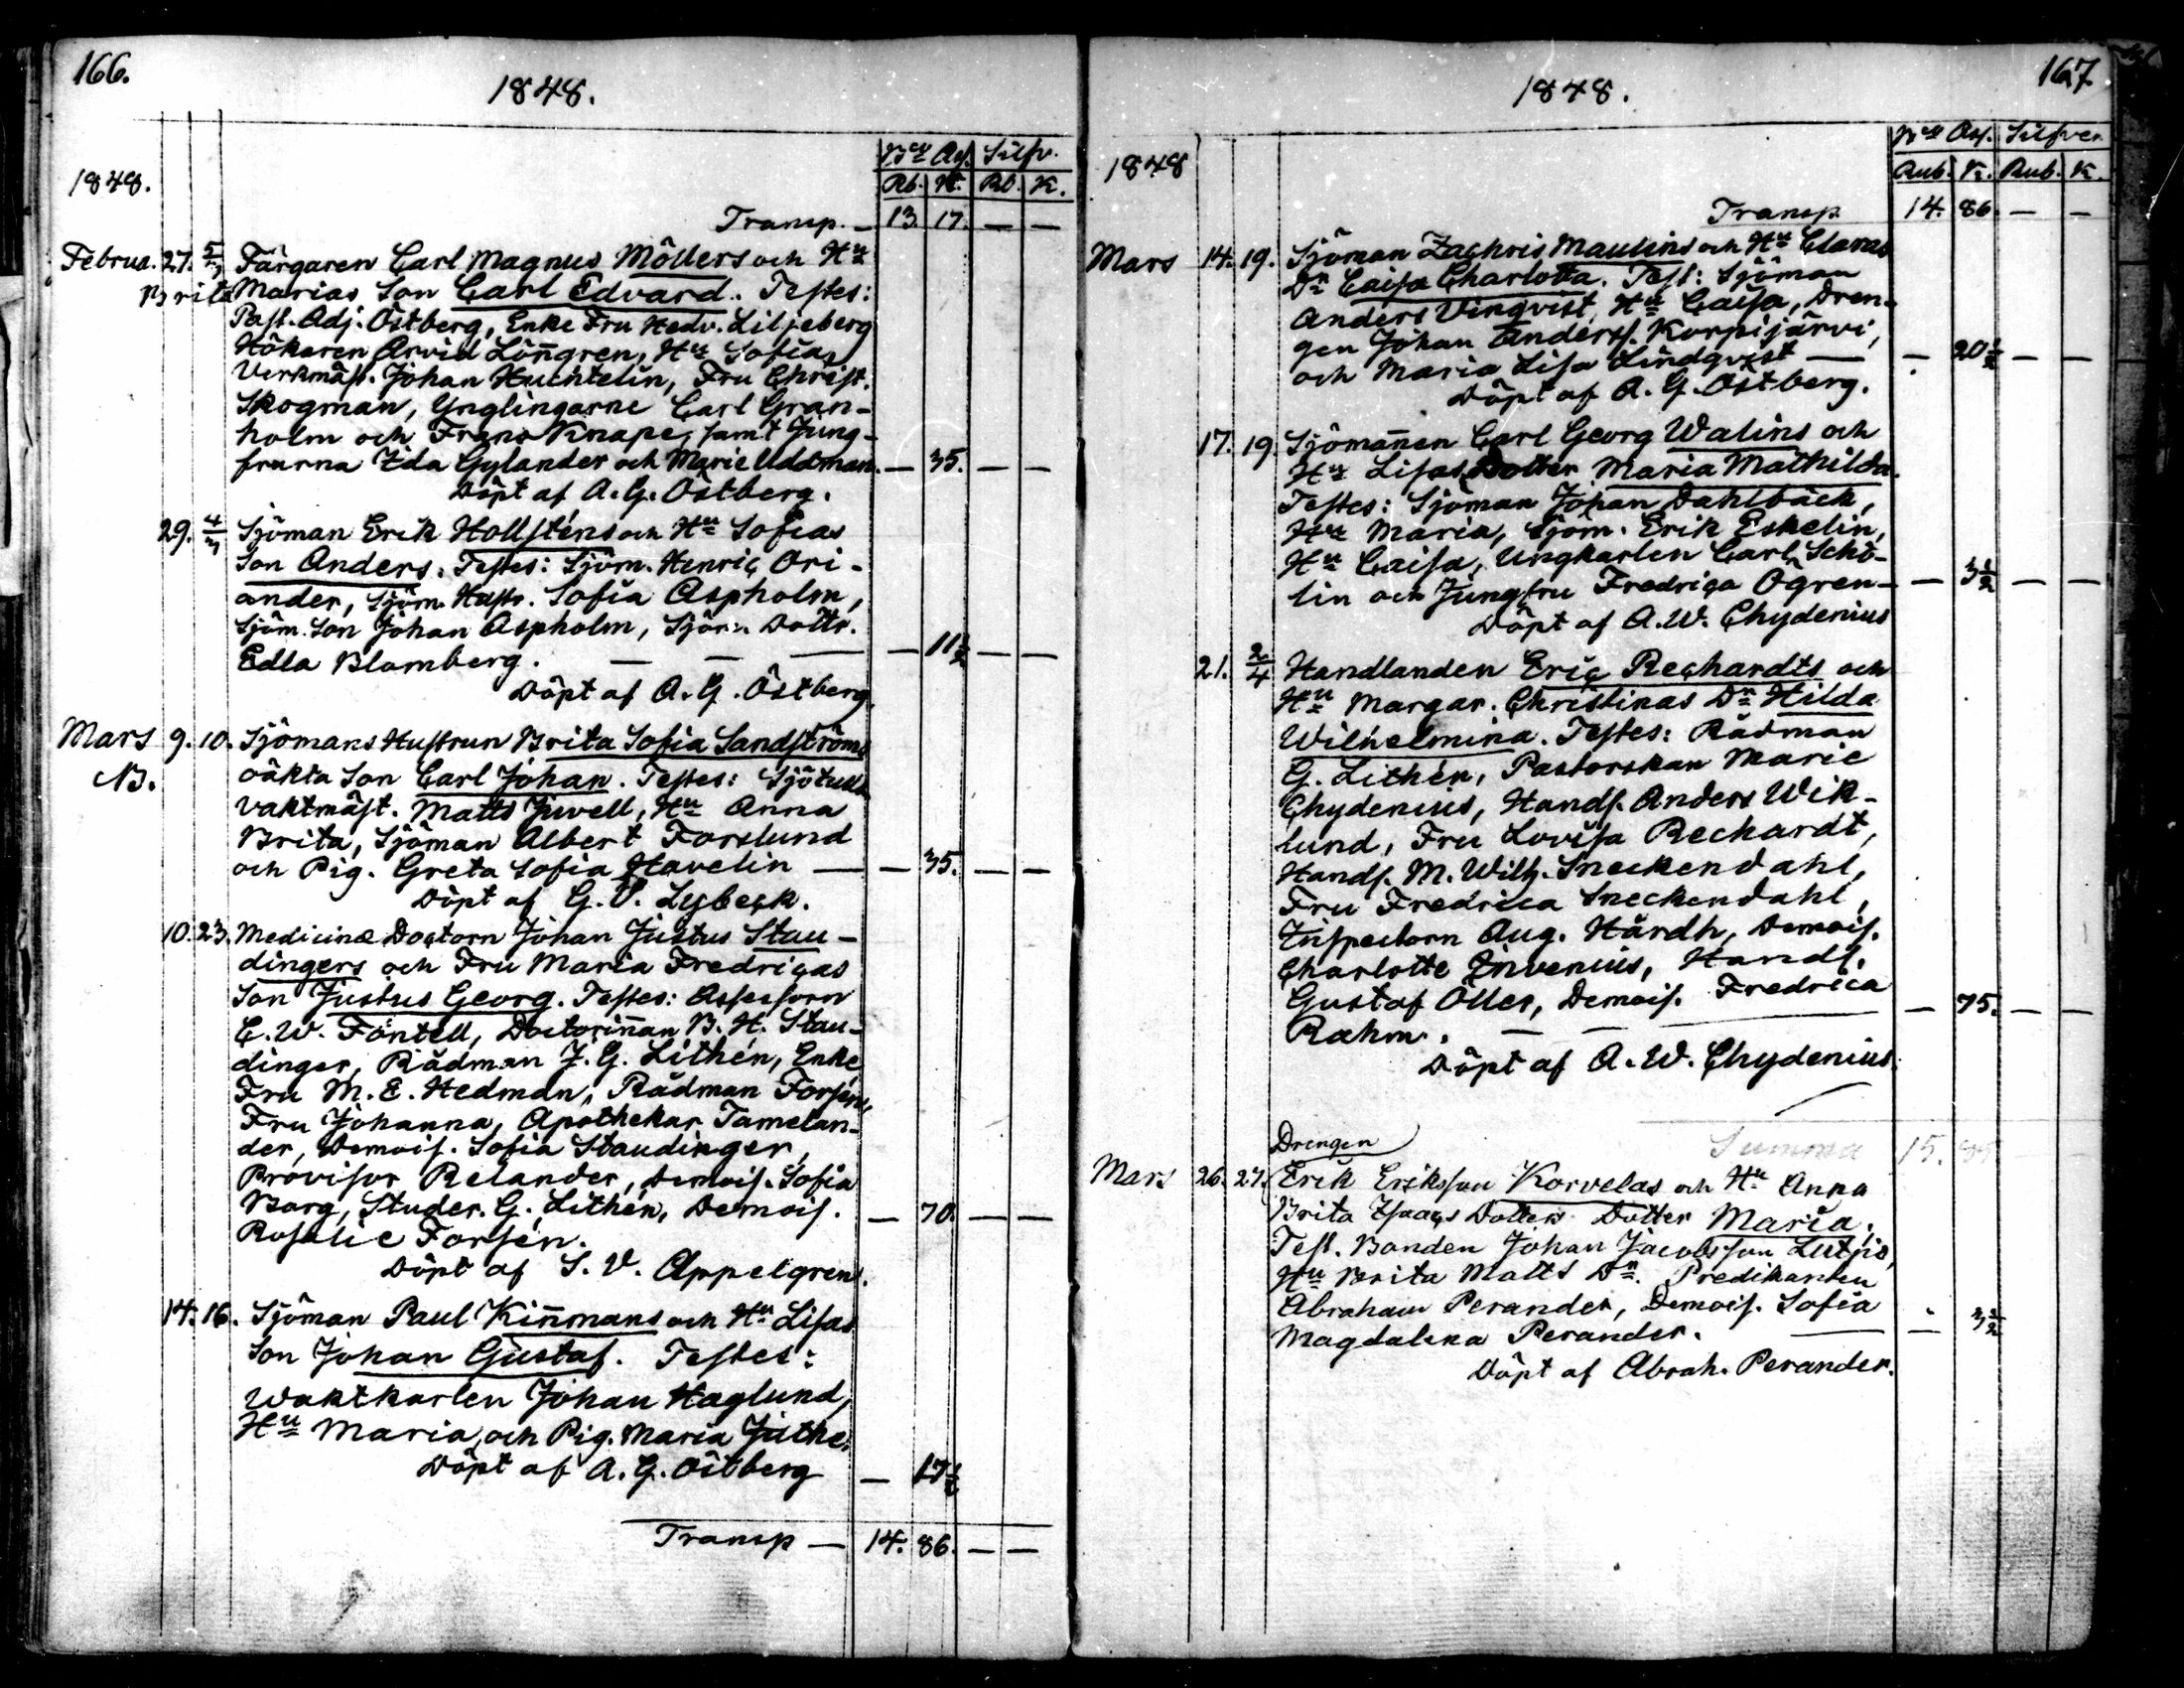 166.
1848.
1848.
B:co As. Silfv.
Rb. K. Rb. K.
Transp. — 13. 17. — —
Februa. 27. 5/3 Färgaren Carl Magnus Möllers och Hu
Brita Marias Son Carl Edvard. Testes:
Past. Adj. Östberg, Enke Fru Hedv. Liljeberg
Hökaren Arvid Löngren, Hu Sofia,
Verkmäst. Johan Huchtelin, Fru Christ.
Skogman, Ynglingarne Carl Gran-
holm och Frans Knape, samt Jung-
frurna Ida Gylander och Marie Uddman. — 35. — —
Döpt af A. G. Östberg.
29. 4/3 Sjöman Erik Hollsténs och Hu Sofias
Son Anders. Testes: Sjöm. Henric Ori-
ander, Sjöm. Hustr. Sofia Aspholm,
Sjöm. Son Johan Aspholm, Sjöm. Dottr.
Edla Blomberg. — — — — 11 1/2 — —
Döpt af A. G. Östberg.
Mars 9. 10. Sjömans Hustrun Brita Sofia Sandströms
N. oäkta Son Carl Johan. Testes:
vaktmäst. Matts Juvell, Hu Anna
Brita, Sjöman Albert Forslund
och Pig. Greta Sofia Havelin — — 35. — —
Döpt af G. V. Lybeck.
10. 23. Medicinæ Doctorn Johan Justus Stau-
dingers och Fru Maria Fredricas
Son Justus Georg. Testes: Assessorn
C. W. Fontell, Doctorinnan B. H. Stau-
dinger, Rådman J. G. Lithén, Enke
Fru M. E. Hedman, Rådman Forséns
Fru Johanna, Apothekar Tamelan-
der, Demois. Sofia Staudinger,
Provisor Relander, Demois. Sofia
Borg, Studer. G. Lithén, Demois. — 70. — —
Rosalie Forsén.
Döpt af S. V. Appelgren.
14. 16. Sjöman Paul Kinmans och Hu Lisas
Son Johan Gustaf. Testes:
Waktkarlen Johan Haglund,
Hu Maria, och Pig. Maria Juthe.
Döpt af A. G. Östberg — 17 1/2
Transp — 14. 86. — —
167.
1848.
1848
B:co As. Silfver
Rub. K. Rub. K.
Transp 14. 86. — —
Mars 14. 19. Sjöman Zachris Maulins och Hu Claras
Dr Caisa Charlotta. Test: Sjöman
Anders Vinqvist, Hu Caisa, Dren-
gen Johan Anderss. Korpijärvi,
och Maria Lisa Lindqvist — — 20 1/2 — —
Döpt af A. G. Östberg.
17. 19. Sjömannen Carl Georg Walins och
Hu Lisas Dotter Maria Mathilda.
Testes: Sjöman Johan Dahlbäck,
Hu Maria, Sjöm. Erik Eskelin,
Hu Caisa, Ungkarlen Carl Schö-
lin och Jungfru Fredrica Ögren — — 3 1/2 — —
Döpt af A. W. Chydenius
21. 2/4 Handlanden Eric Rechardts och
Hu Margar. Christinas Dr Hilda
Wilhelmina. Testes: Rådman
G. Lithén, Pastorskan Marie
Chydenius, Handl. Anders Wik-
lund, Fru Lovisa Reckardt,
Handl. M. Wilh. Sneckendahl,
Fru Fredrica Sneckendahl,
Inspectorn Aug. Hårdh, Demois.
Charlotte Invenius, Handl.
Gustaf Öller, Demois. Fredrica
Rahm. — — — — 75. — —
Döpt af A. W. Chydenius.
Summa 15.
Drengen
Mars 26. 27. Erik Eriksson Korvelas och Hu Anna
Brita Isaacs Dotters Dotter Maria.
Test. Bonden Johan Jacobsson
Hu Brita Matts Dr. Predikanten
Abraham Perander, Demois. Sofia
Magdalena Perander. — — 3 1/2
Döpt af Abrah. Perander.